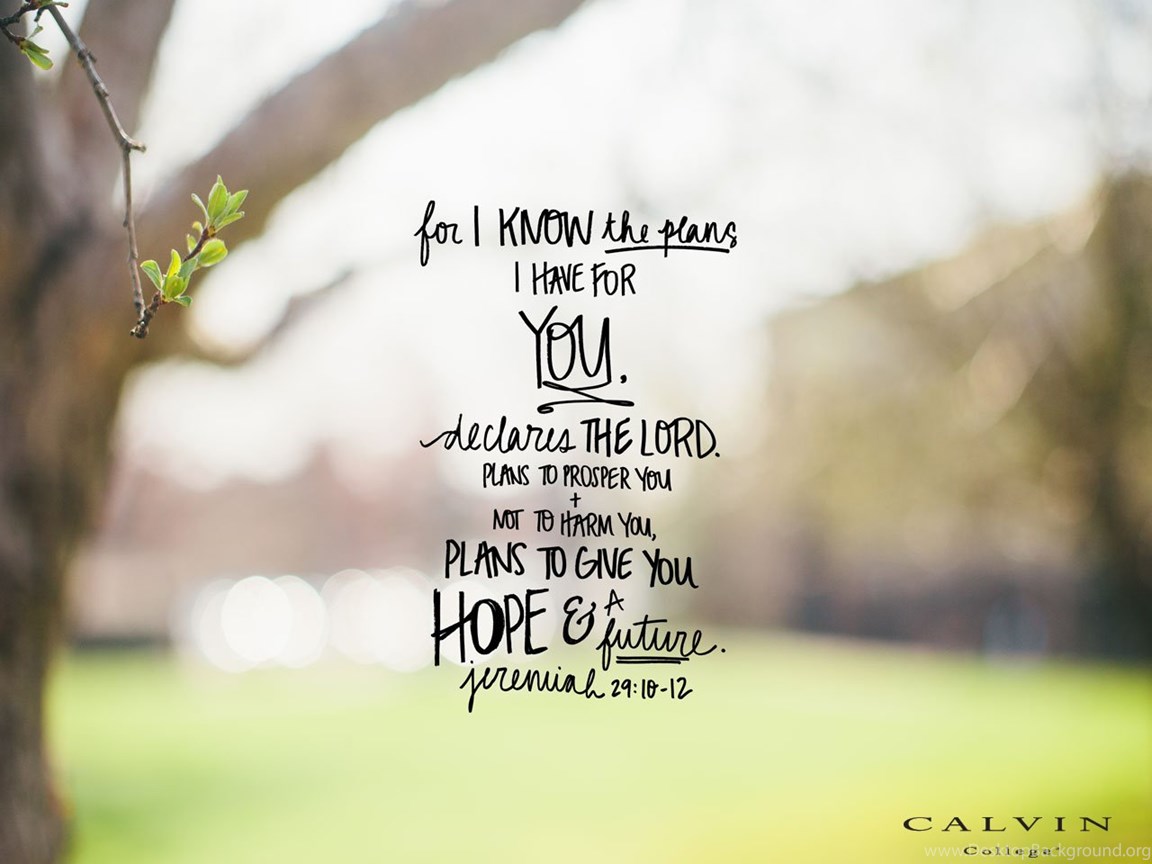 for I KNOW the plans
I HAVE FOR
YOU.
declares THE LORD.
PLANS TO PROSPER YOU
+
NOT TO HARM YOU,
PLANS TO GIVE YOU
HOPE & A future.
jeremiah 29:10-12
CALVIN
College
www.DesktopBackground.org